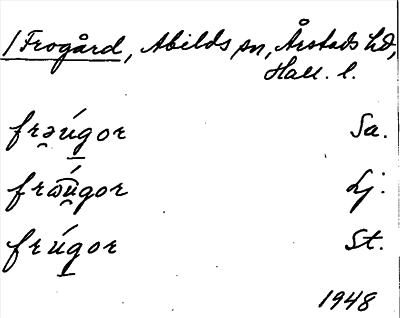 /Frogård, Abilds sn, Årstads hd,
Hall. l.
frə̯úgor Sa.
frɷú̯gor Lj.
frúgor St.
1948